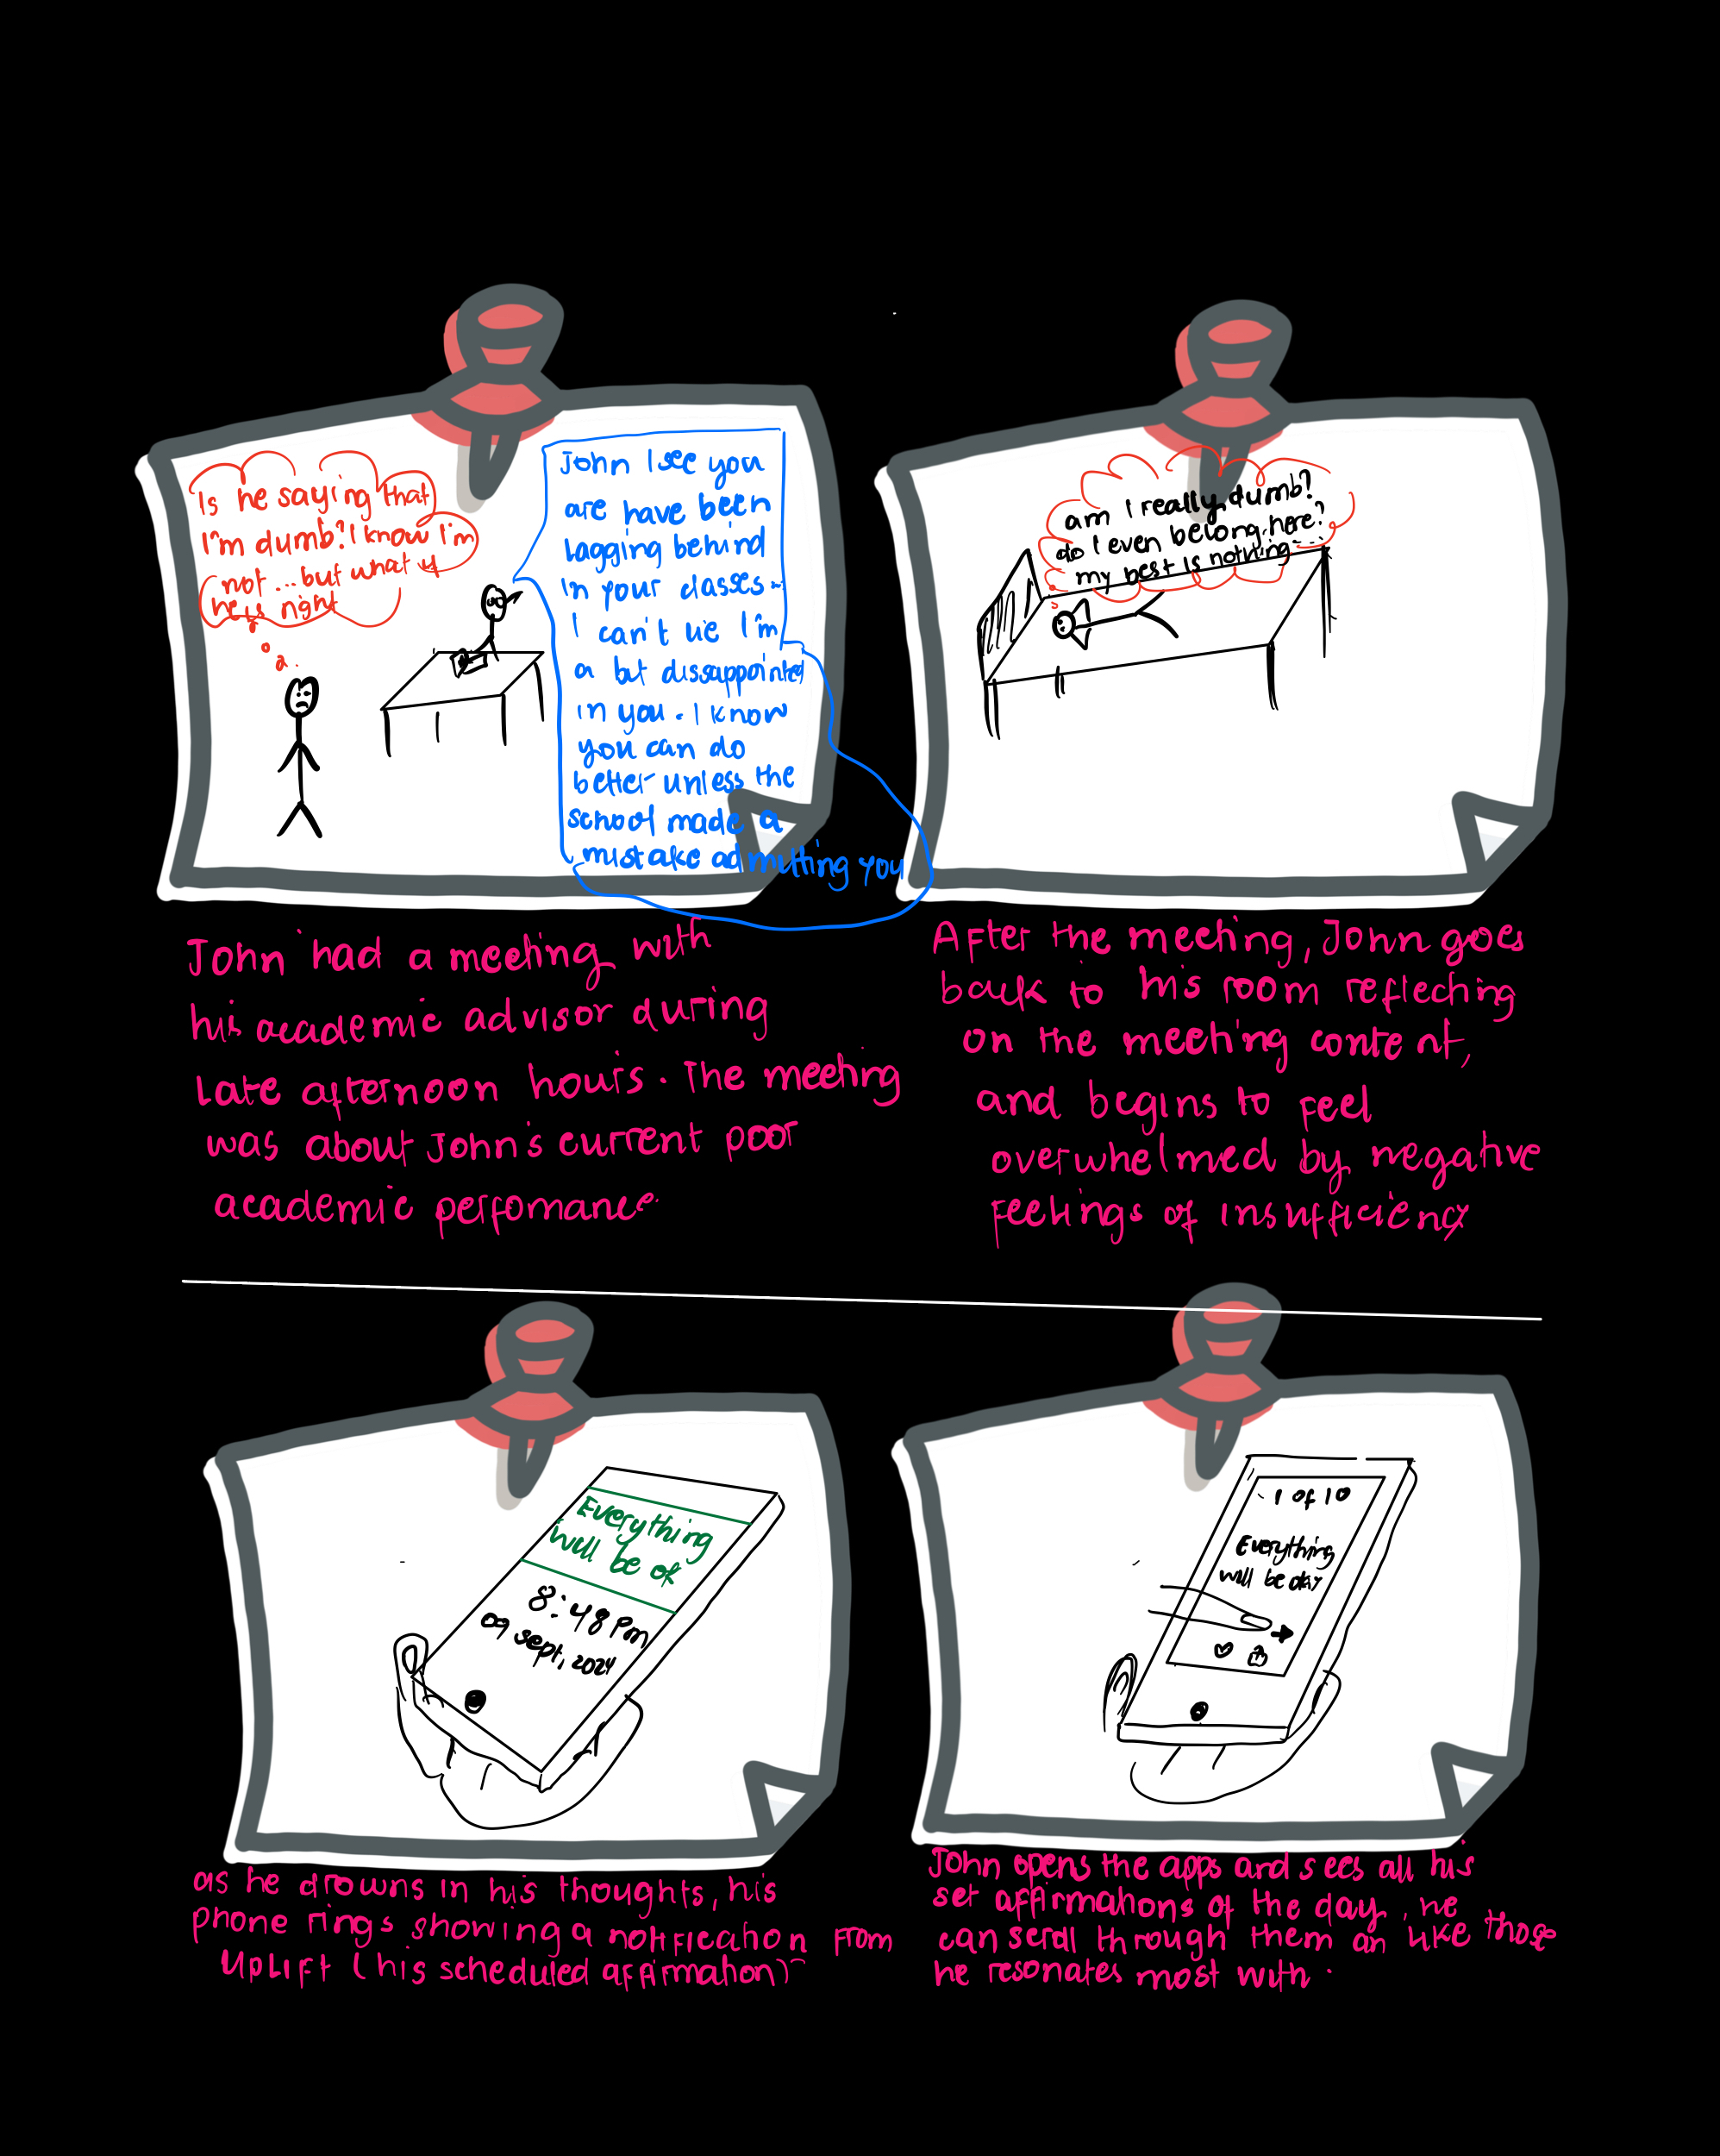 Is he saying that
I'm dumb? I know I'm
not ... but what if
he is right
John I see you
are have been
lagging behind
in your classes -
I can't lie I'm
a bit dissappointed
in you. I know
you can do
better unless the
school made a
mistake admitting you
John had a meeting with
his academic advisor during
late afternoon hours. The meeting
was about John's current poor
academic perfomance.
am I really dumb?
do I even belong here?
my best is nothing ...
After the meeting, John goes
back to his room reflecting
on the meeting content,
and begins to feel
overwhelmed by negative
feelings of insufficiency
Everything
will be ok
8:48 Pm
09 sept, 2024
as he drowns in his thoughts, his
phone rings showing a notification from
UPLIFT (his scheduled affirmation)
1 of 10
Everything
will be okay
John opens the apps and sees all his
set affirmations of the day, he
can scroll through them an like those
he resonates most with.